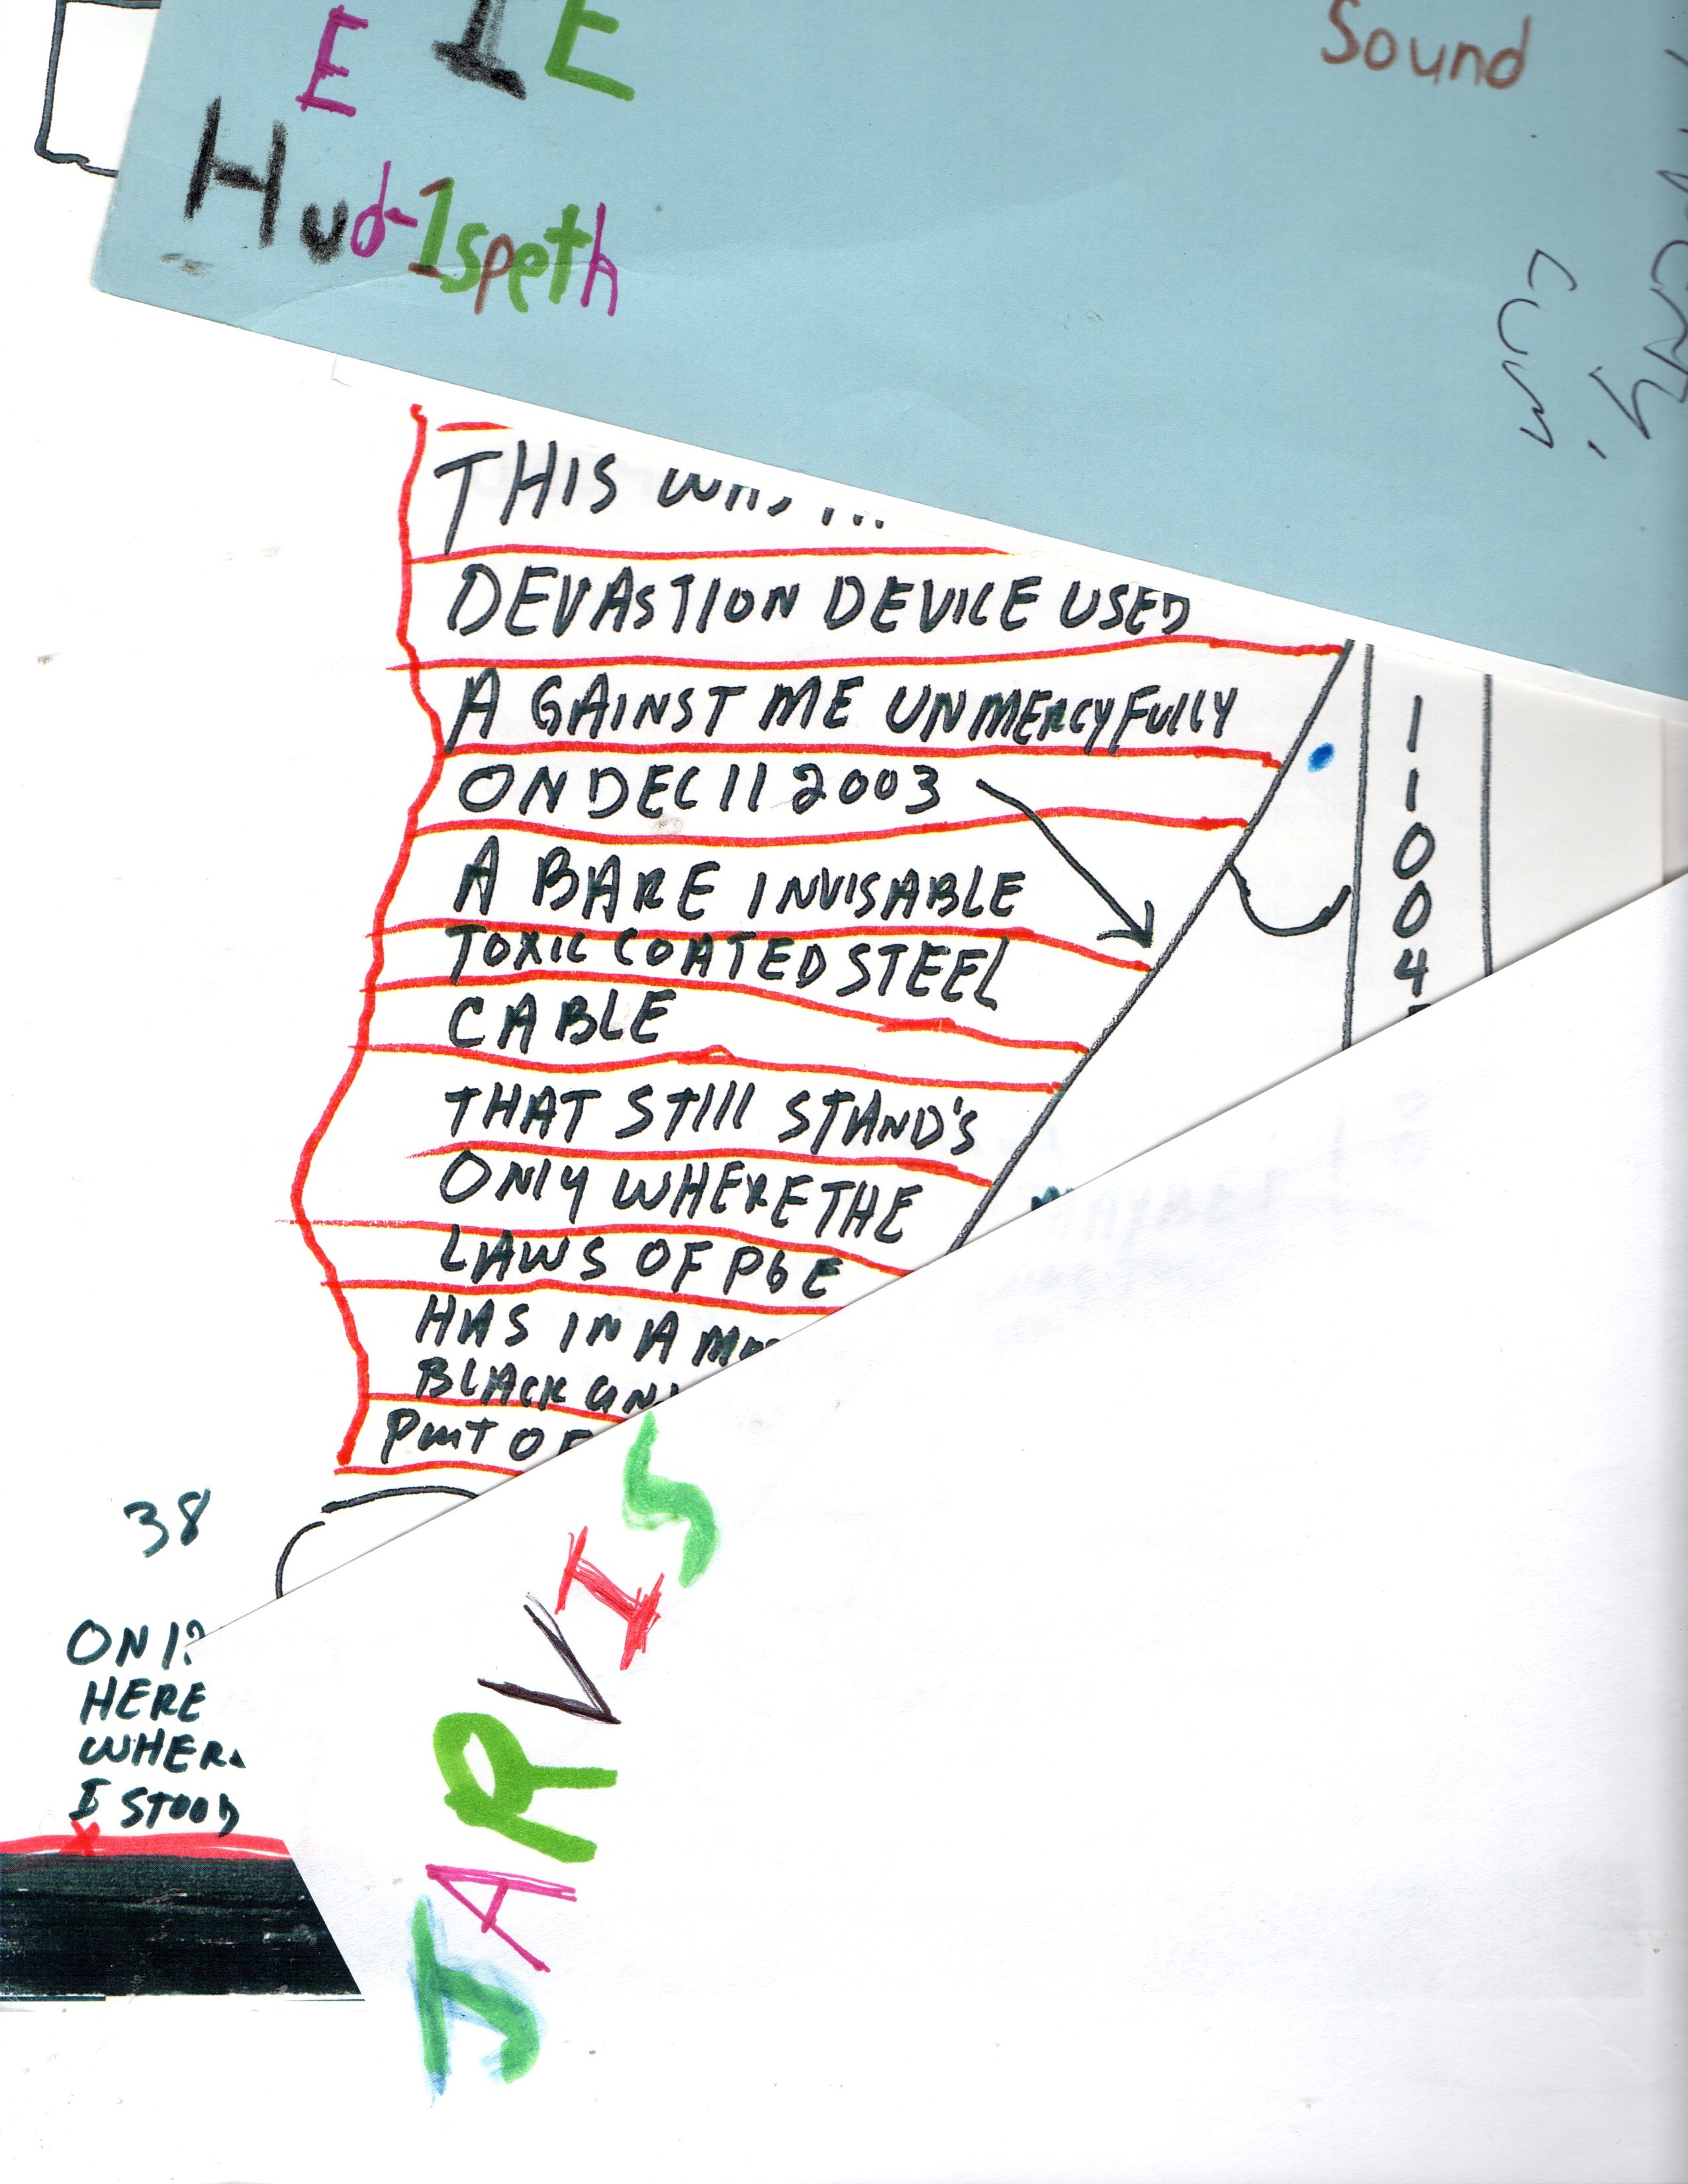 E IE
Sound
Hud-1speth
THIS WAS
DEVASTION DEVICE USED
A GAINST ME UNMERCYFULLY
ON DEC 11 2003
A BARE INVISABLE
TOXIC COATED STEEL
CABLE
THAT STILL STAND'S
ONLY WHERE THE
LAWS OF PGE
HAS IN A
BLACK
PART OF
1
1
0
0
4
38
HERE
WHERE
I STOOD
X
JARVIS